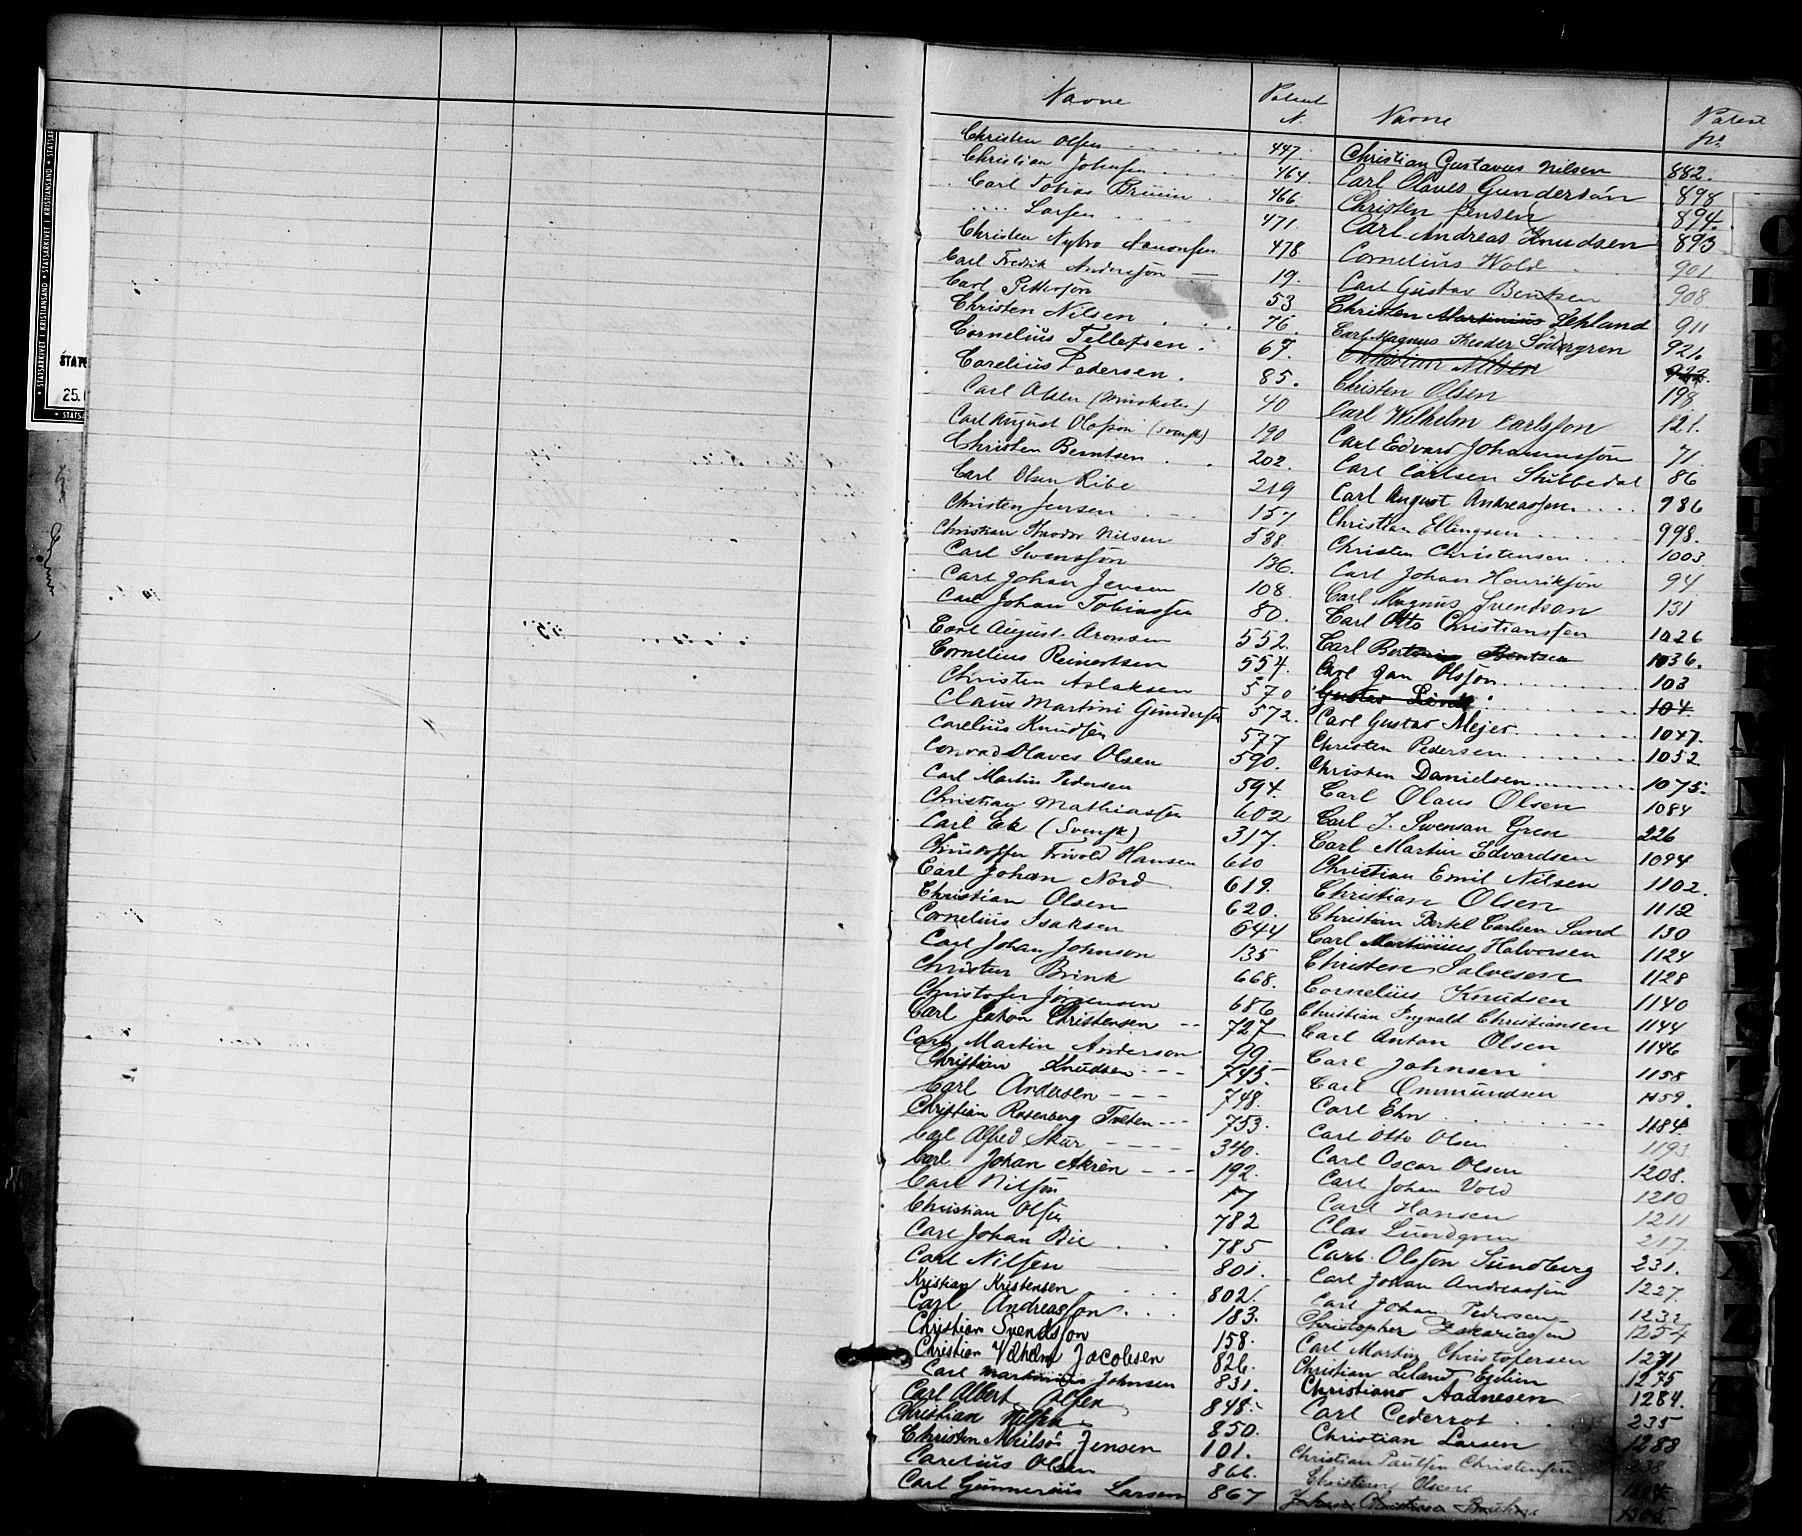 Navne
Patent
N.
Christen Olsen 447.
Christian Johnsen 464.
Carl Tobias 466
Larsen 471.
Christen Nybro Aanonsen 478
Carl Fredrik Andersson 19.
Carl Pettersøn 53
Christen Nilsen 76.
Cornelius Tellefsen 67.
Carelius Pedersen 85.
Carl Olsen 40
Carl August Olofson (Svensk) 190
Christen Berntsen 202.
Carl Olsen Ribe 219
Christen Jensen 157
Christian Theodor Nilsen 538.
Carl Swensson 136.
Carl Johan Jensen 108.
Carl Johan Tobiassen 80.
Carl August Aronsen 552.
Cornelius Reinertsen 554.
Christen Aslaksen 570
Claus Martini Gundersen 572.
Carelius Knudsen 577
Conrad Olaves Olsen 590.
Carl Martin Pedersen 594.
Christian Mathiassen 602
Carl Ek (Svensk) 317.
Christoffer Trivold Hansen 610
Carl Johan Nord 619.
Christian Olsen 620.
Cornelius Isaksen 644
Carl Johan Johnson 135
Christen Brink 668.
Christofer Jørgensen 686
Carl Johan Christensen 727
Carl Martin Anderson 99.
Christian Knudsen 745.
Carl Andersen 748.
Christian Rosenberg Tveten 753.
Carl Alfred Skár 340.
Carl Johan Akrèn 192.
Carl Nilson 17
Christian Olsen 782
Carl Johan Bie 785
Carl Nilsen 801.
Kristian Kristensen 802.
Carl Andreasson 183.
Christian Svendson 158.
Christian Vilhelm Jacobsen 826.
Carl Martinius Johnsen 831.
Carl Albert Olsen 848.
Christian Nilsen 850.
Christen Jensen 101.
Carelius Olsen 866.
Carl Gunnerius Larsen 867
Navne
Patent
No.
Christian Gustavus Nilsen 882.
Carl Olaves Gundersøn 898
Christen Jensen 894.
Carl Andreas Knudsen 893
Cornelius Wold 901.
Carl Gustav Bentsen 908
Christen Martinius Lehland 911
Carl Magnus Theodor Södergren 921.
Christian Nilsen 922.
Christen Olsen 198
Carl Wilhelm Carlsson 121.
Carl Edvard Johannesson 71
Carl Carlsen Stubbedal 86
Carl August Andreassen 986
Christian Ellingsen 998.
Christen Christensen 1003
Carl Johan Henrikson 94
Carl Magnus Svendson 131
Carl Otto Christianssen 1026
Carl Bentsen 1036.
Carl Jan Olsson 103
Gustav 104.
Carl Gustav Mejer 1047.
Christen Pedersen 1052
Christen Danielsen 1075.
Carl Olaus Olsen 1084
Carl J. Swensan Gren 226
Carl Martin Edvardsen 1094
Christian Emil Nilsen 1102.
Christian Olsen 1112
Christian Bertel Carlsen Sand 130
Carl Martinius Halvorsen 1124
Christen Salvesen 1128
Cornelius Knudsen 1140
Christian Ingvald Christiansen 1144
Carl Anton Olsen 1146
Carl Johnsen 1158
Carl Ommundsen 1159.
Carl Ehn 1184
Carl Otto Olsen 1193
Carl Oscar Olsen 1208.
Carl Johan Vold 1210
Carl Hansen 1211
Clas Lundgren 217.
Carl Olsson Sundberg 231.
Carl Johan Andreassen 1227.
Carl Johan Pedersen 1232
Christopher Zakariassen 1254
Carl Martin Christofersen 1271
Christian Leland 1275
Christiano Aadnesen 1284.
Carl Cederrot 235
Christian Larsen 1288
Christian Paulsen Christensen 238
Christian Olsen
Johan Christian
STATSARKIVET I KRISTIANSAND • STATSARKIVET I KRISTIANSAND • STATSAR
STATS
25.